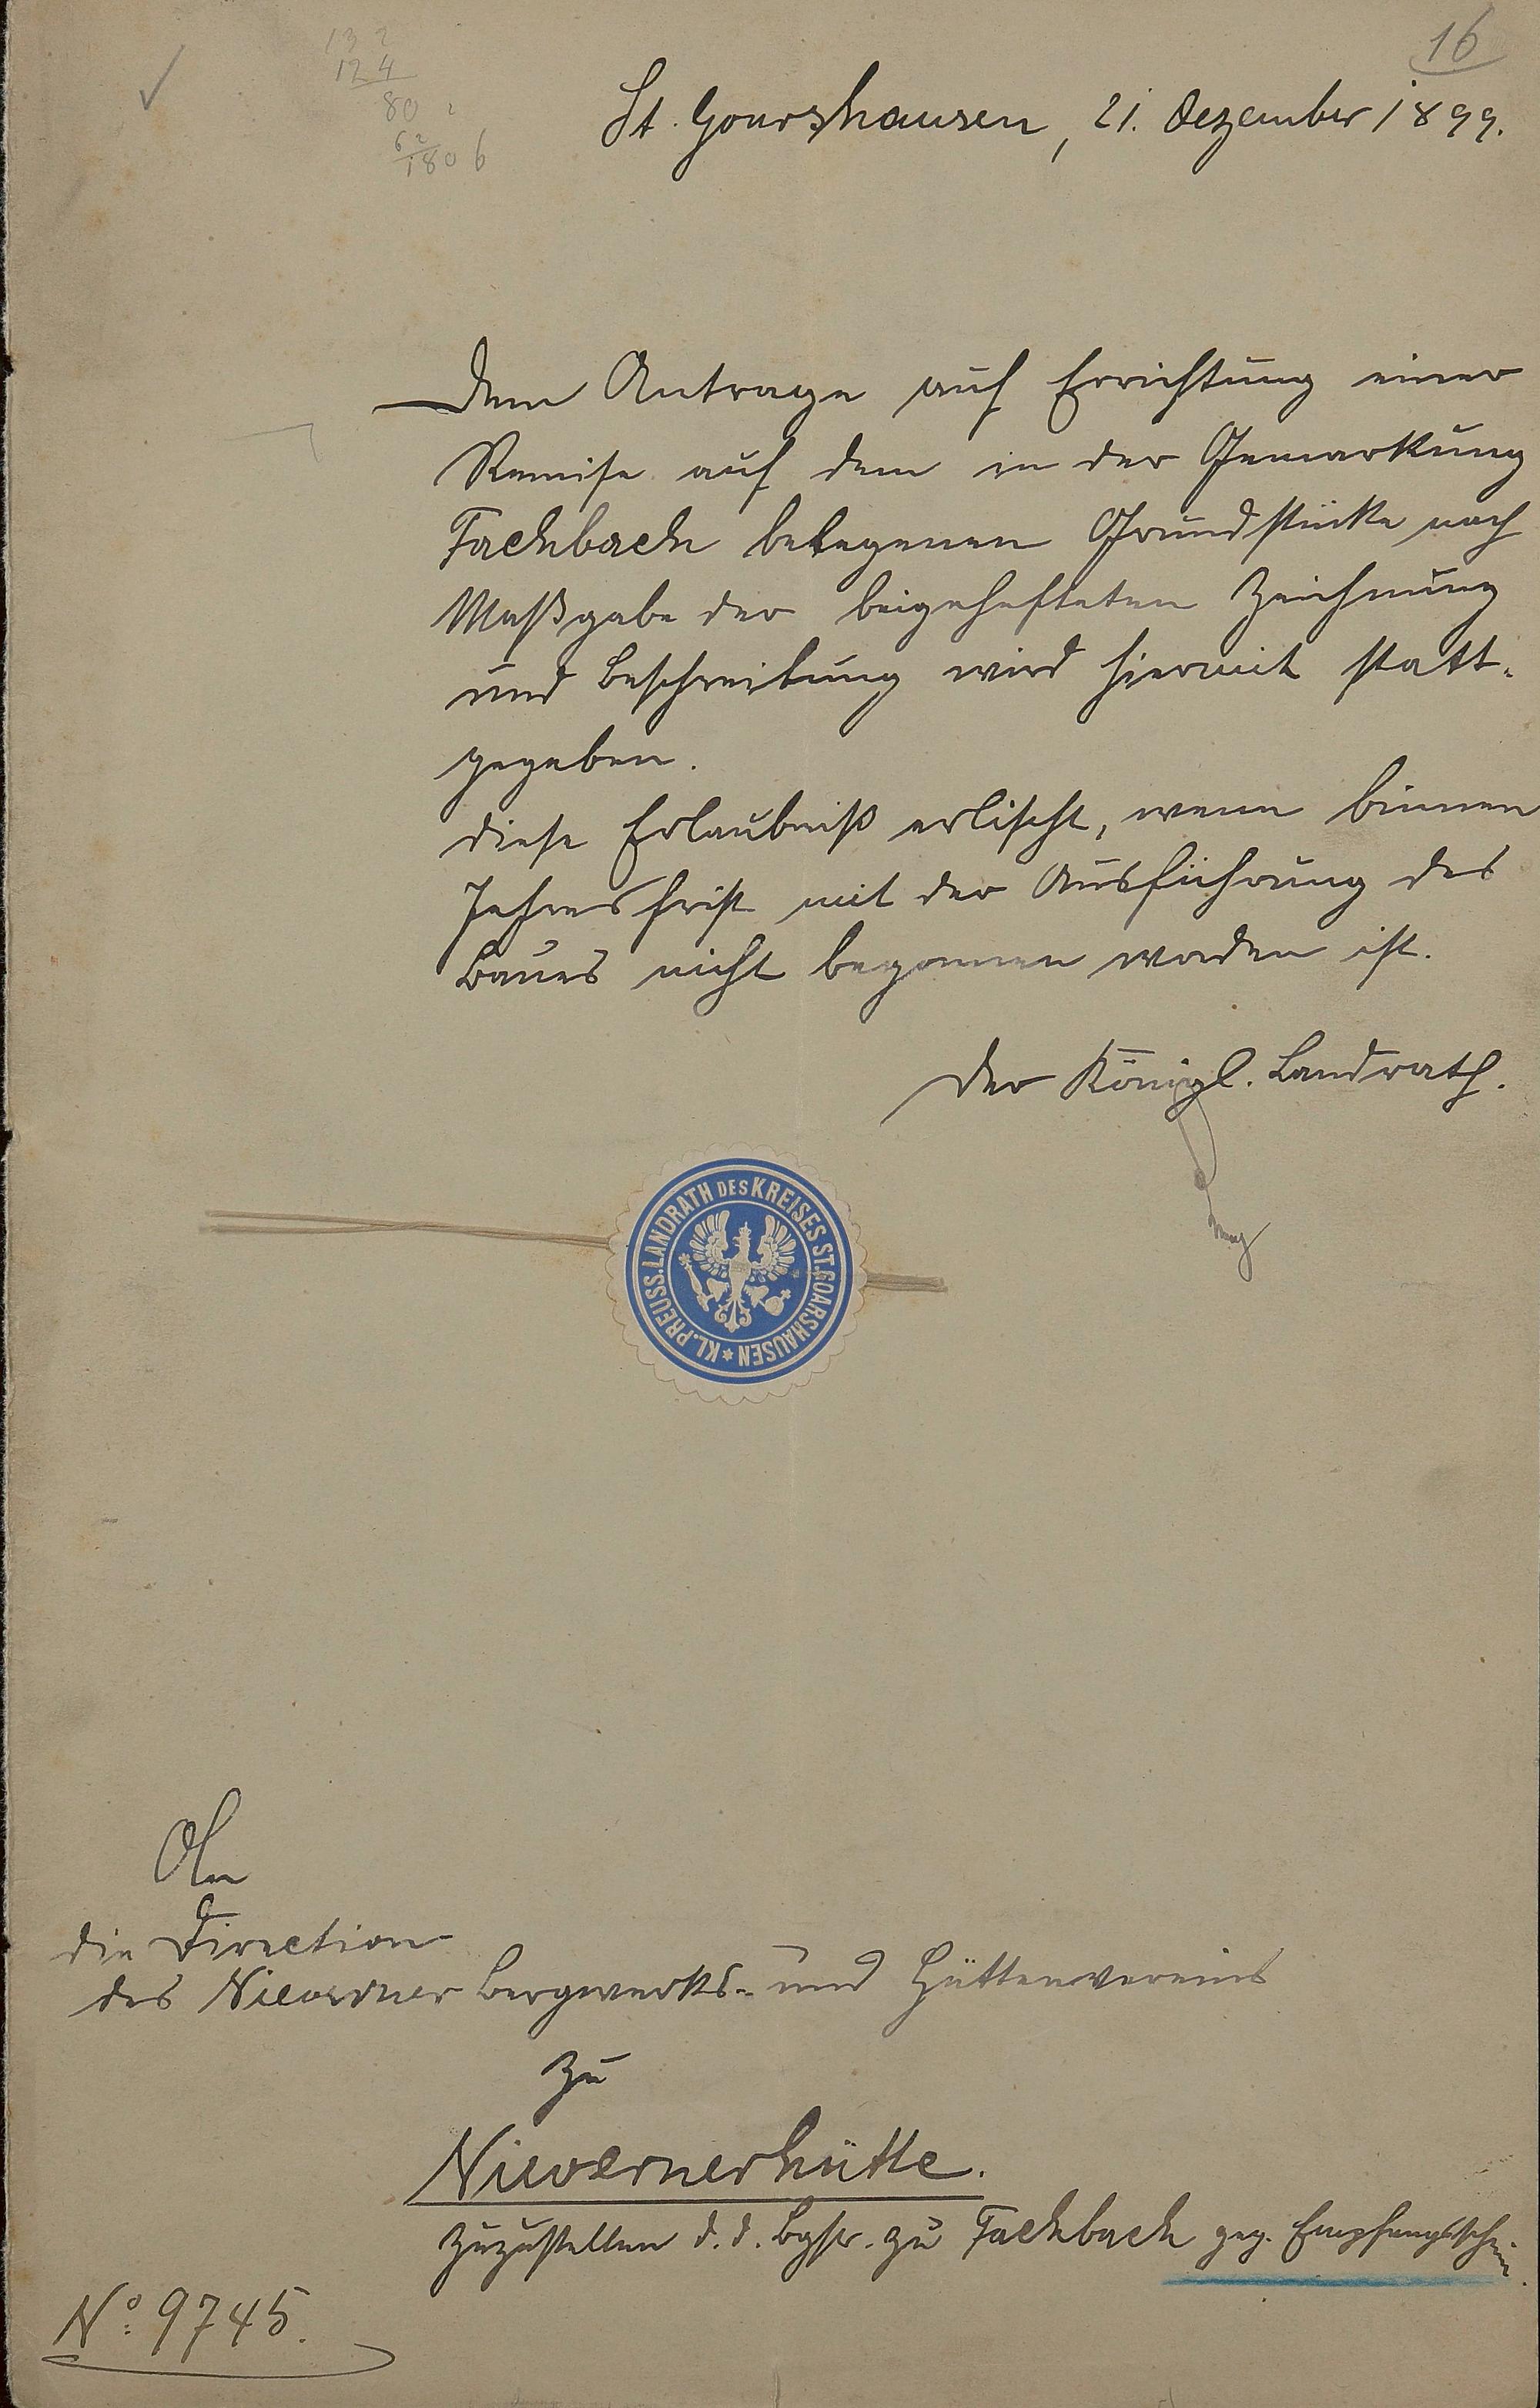 16
13 2
12 4
80
62
180 6
St. Goarshausen, 21. Dezember 1899.
Dem Antrage auf Errichtung einer
Remise auf dem in der Gemarkung
Fachbach belegenen Grundstücke nach
Maßgabe der beigehefteten Zeichnung
und Beschreibung wird hiermit statt-
gegeben.
Diese Erlaubniß erlischt, wenn binnen
Jahresfrist mit der Ausführung des
Baues nicht begonnen worden ist.
Der Königl. Landrath.
KL. PREUSS. LANDRATH DES KREISES ST. GOARSHAUSEN
An
die Direction
des Nieverner Bergwerks- und Hüttenvereins
zu
Nievernerhütte.
Zuzustellen d. d. Bgstr. zu Fachbach geg. Empfangsschein.
No: 9745.